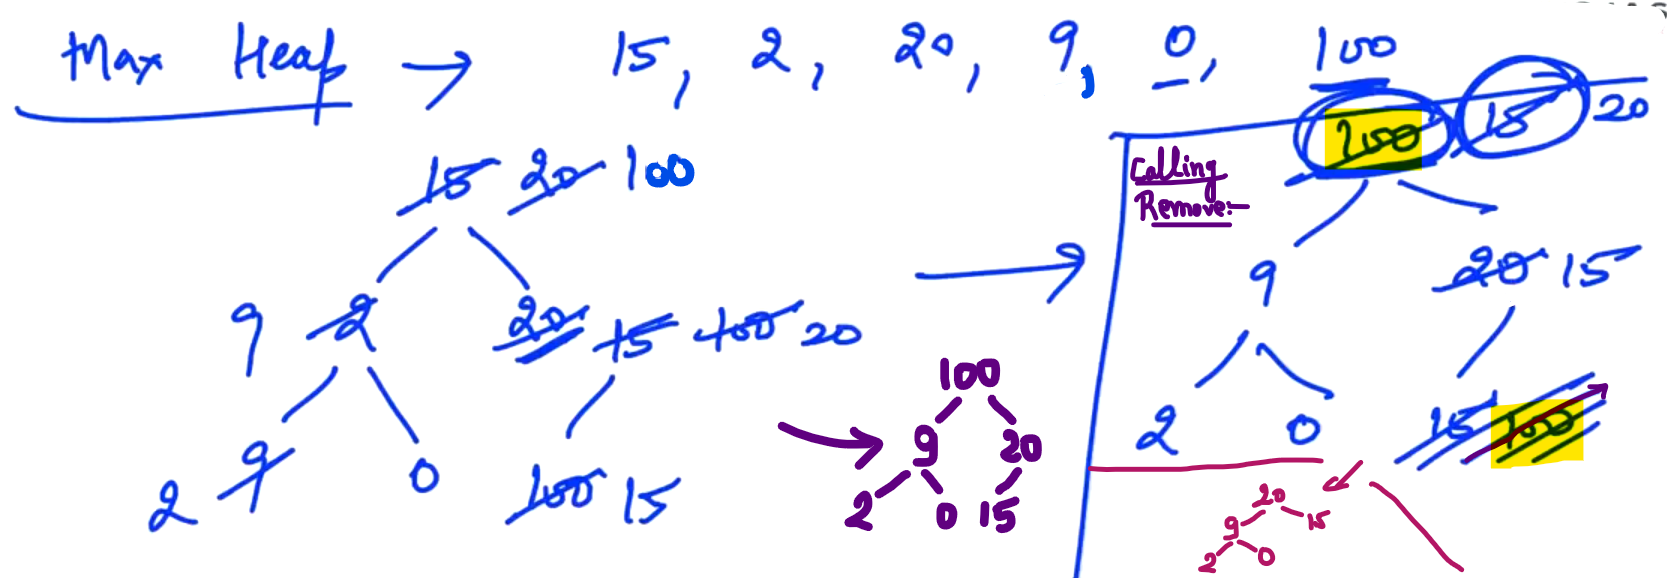 Max Heap → 15, 2, 20, 9, 0, 100
15 20 100
9 2 20 15 100 20
2 9 0 100 15
100
9 20
2 0 15
Calling
Remove:-
100 15 20
9 20 15
2 0 15 100
20
9 15
2 0